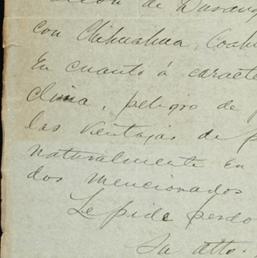 de Durang
con Chihuahua, Coah
En cuanto á caracte
clima, peligro de
las ventajas de p
naturalmente en
dos mencionados
Le pide perdo
Su atto.